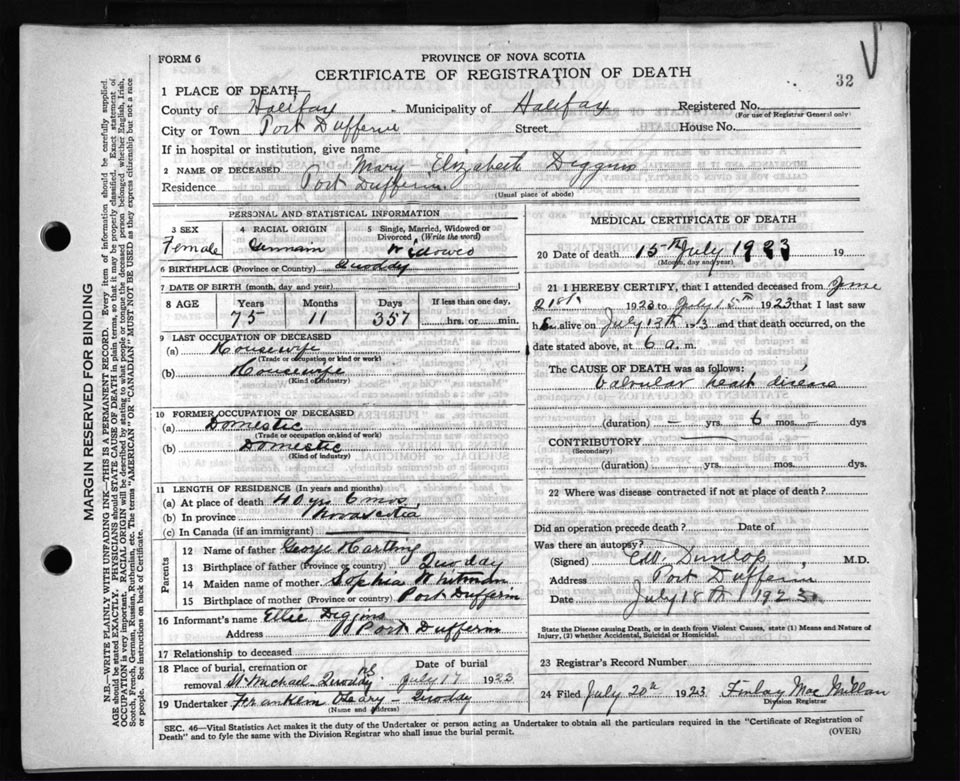 FORM 6
PROVINCE OF NOVA SCOTIA
CERTIFICATE OF REGISTRATION OF DEATH
32
1 PLACE OF DEATH—
County of Halifax Municipality of Halifax Registered No.
(For use of Registrar General only)
City or Town Port Dufferin Street House No.
If in hospital or institution, give name
2 NAME OF DECEASED Mary Elizabeth Diggins
Residence Port Dufferin
(Usual place of abode)
PERSONAL AND STATISTICAL INFORMATION
3 SEX 4 RACIAL ORIGIN 5 Single, Married, Widowed or Divorced (Write the word)
Female German Widowed
6 BIRTHPLACE (Province or Country) Quoddy
7 DATE OF BIRTH (month, day and year)
8 AGE Years Months Days If less than one day.
75 11 357 hrs. or min.
9 LAST OCCUPATION OF DECEASED
(a) Housewife
(Trade or occupation or kind or work)
(b) Housewife
(Kind of industry)
10 FORMER OCCUPATION OF DECEASED
(a) Domestic
(Trade or occupation or kind of work)
(b) Domestic
(Kind of industry)
11 LENGTH OF RESIDENCE (In years and months)
(a) At place of death 40 yrs 6 mos
(b) In province Nova Scotia
(c) In Canada (if an immigrant)
Parents
12 Name of father George Harting
13 Birthplace of father (Province or country) Quoddy
14 Maiden name of mother Sophia Whitman
15 Birthplace of mother (Province or country) Port Dufferin
16 Informant's name Ellie Diggins
Address Port Dufferin
17 Relationship to deceased
18 Place of burial, cremation or Date of burial
removal St Michael Quoddy NS July 17 1923
19 Undertaker Franklin Quoddy
(Name and address)
MEDICAL CERTIFICATE OF DEATH
20 Date of death 15th July 1923 19
(Month, day and year)
21 I HEREBY CERTIFY, that I attended deceased from June
21st 1923 to July 15th 1923 that I last saw
alive on July 13th and that death occurred, on the
date stated above, at 6 a. m.
The CAUSE OF DEATH was as follows:
Valvular heart disease
(duration) — yrs. 6 mos. — dys
CONTRIBUTORY
(Secondary)
(duration) yrs. mos. dys.
22 Where was disease contracted if not at place of death?
Did an operation precede death? Date of
Was there an autopsy?
(Signed) Dunlop, M.D.
Address Port Dufferin
Date July 18th 1923
State the Disease causing Death, or in death from Violent Causes, state (1) Means and Nature of
Injury, (2) whether Accidental, Suicidal or Homicidal.
23 Registrar's Record Number
24 Filed July 20th 1923 Finlay MacMillan
Division Registrar
SEC. 46—Vital Statistics Act makes it the duty of the Undertaker or person acting as Undertaker to obtain all the particulars required in the "Certificate of Registration of
Death" and to fyle the same with the Division Registrar who shall issue the burial permit.
(OVER)
MARGIN RESERVED FOR BINDING
N.B.—WRITE PLAINLY WITH UNFADING INK—THIS IS A PERMANENT RECORD. Every item of information should be carefully supplied.
AGE should be stated EXACTLY. PHYSICIANS should STATE CAUSE OF DEATH in plain terms, so that it may be properly classified. Exact statement of
OCCUPATION is very important. RACIAL ORIGIN will be described by stating to what people or tongue the deceased person belonged whether English, Irish,
Scotch, French, German, Russian, Ruthenian, etc. The terms "AMERICAN" OR "CANADIAN" MUST NOT BE USED as they express citizenship but not a race
or people. See instructions on back of Certificate.